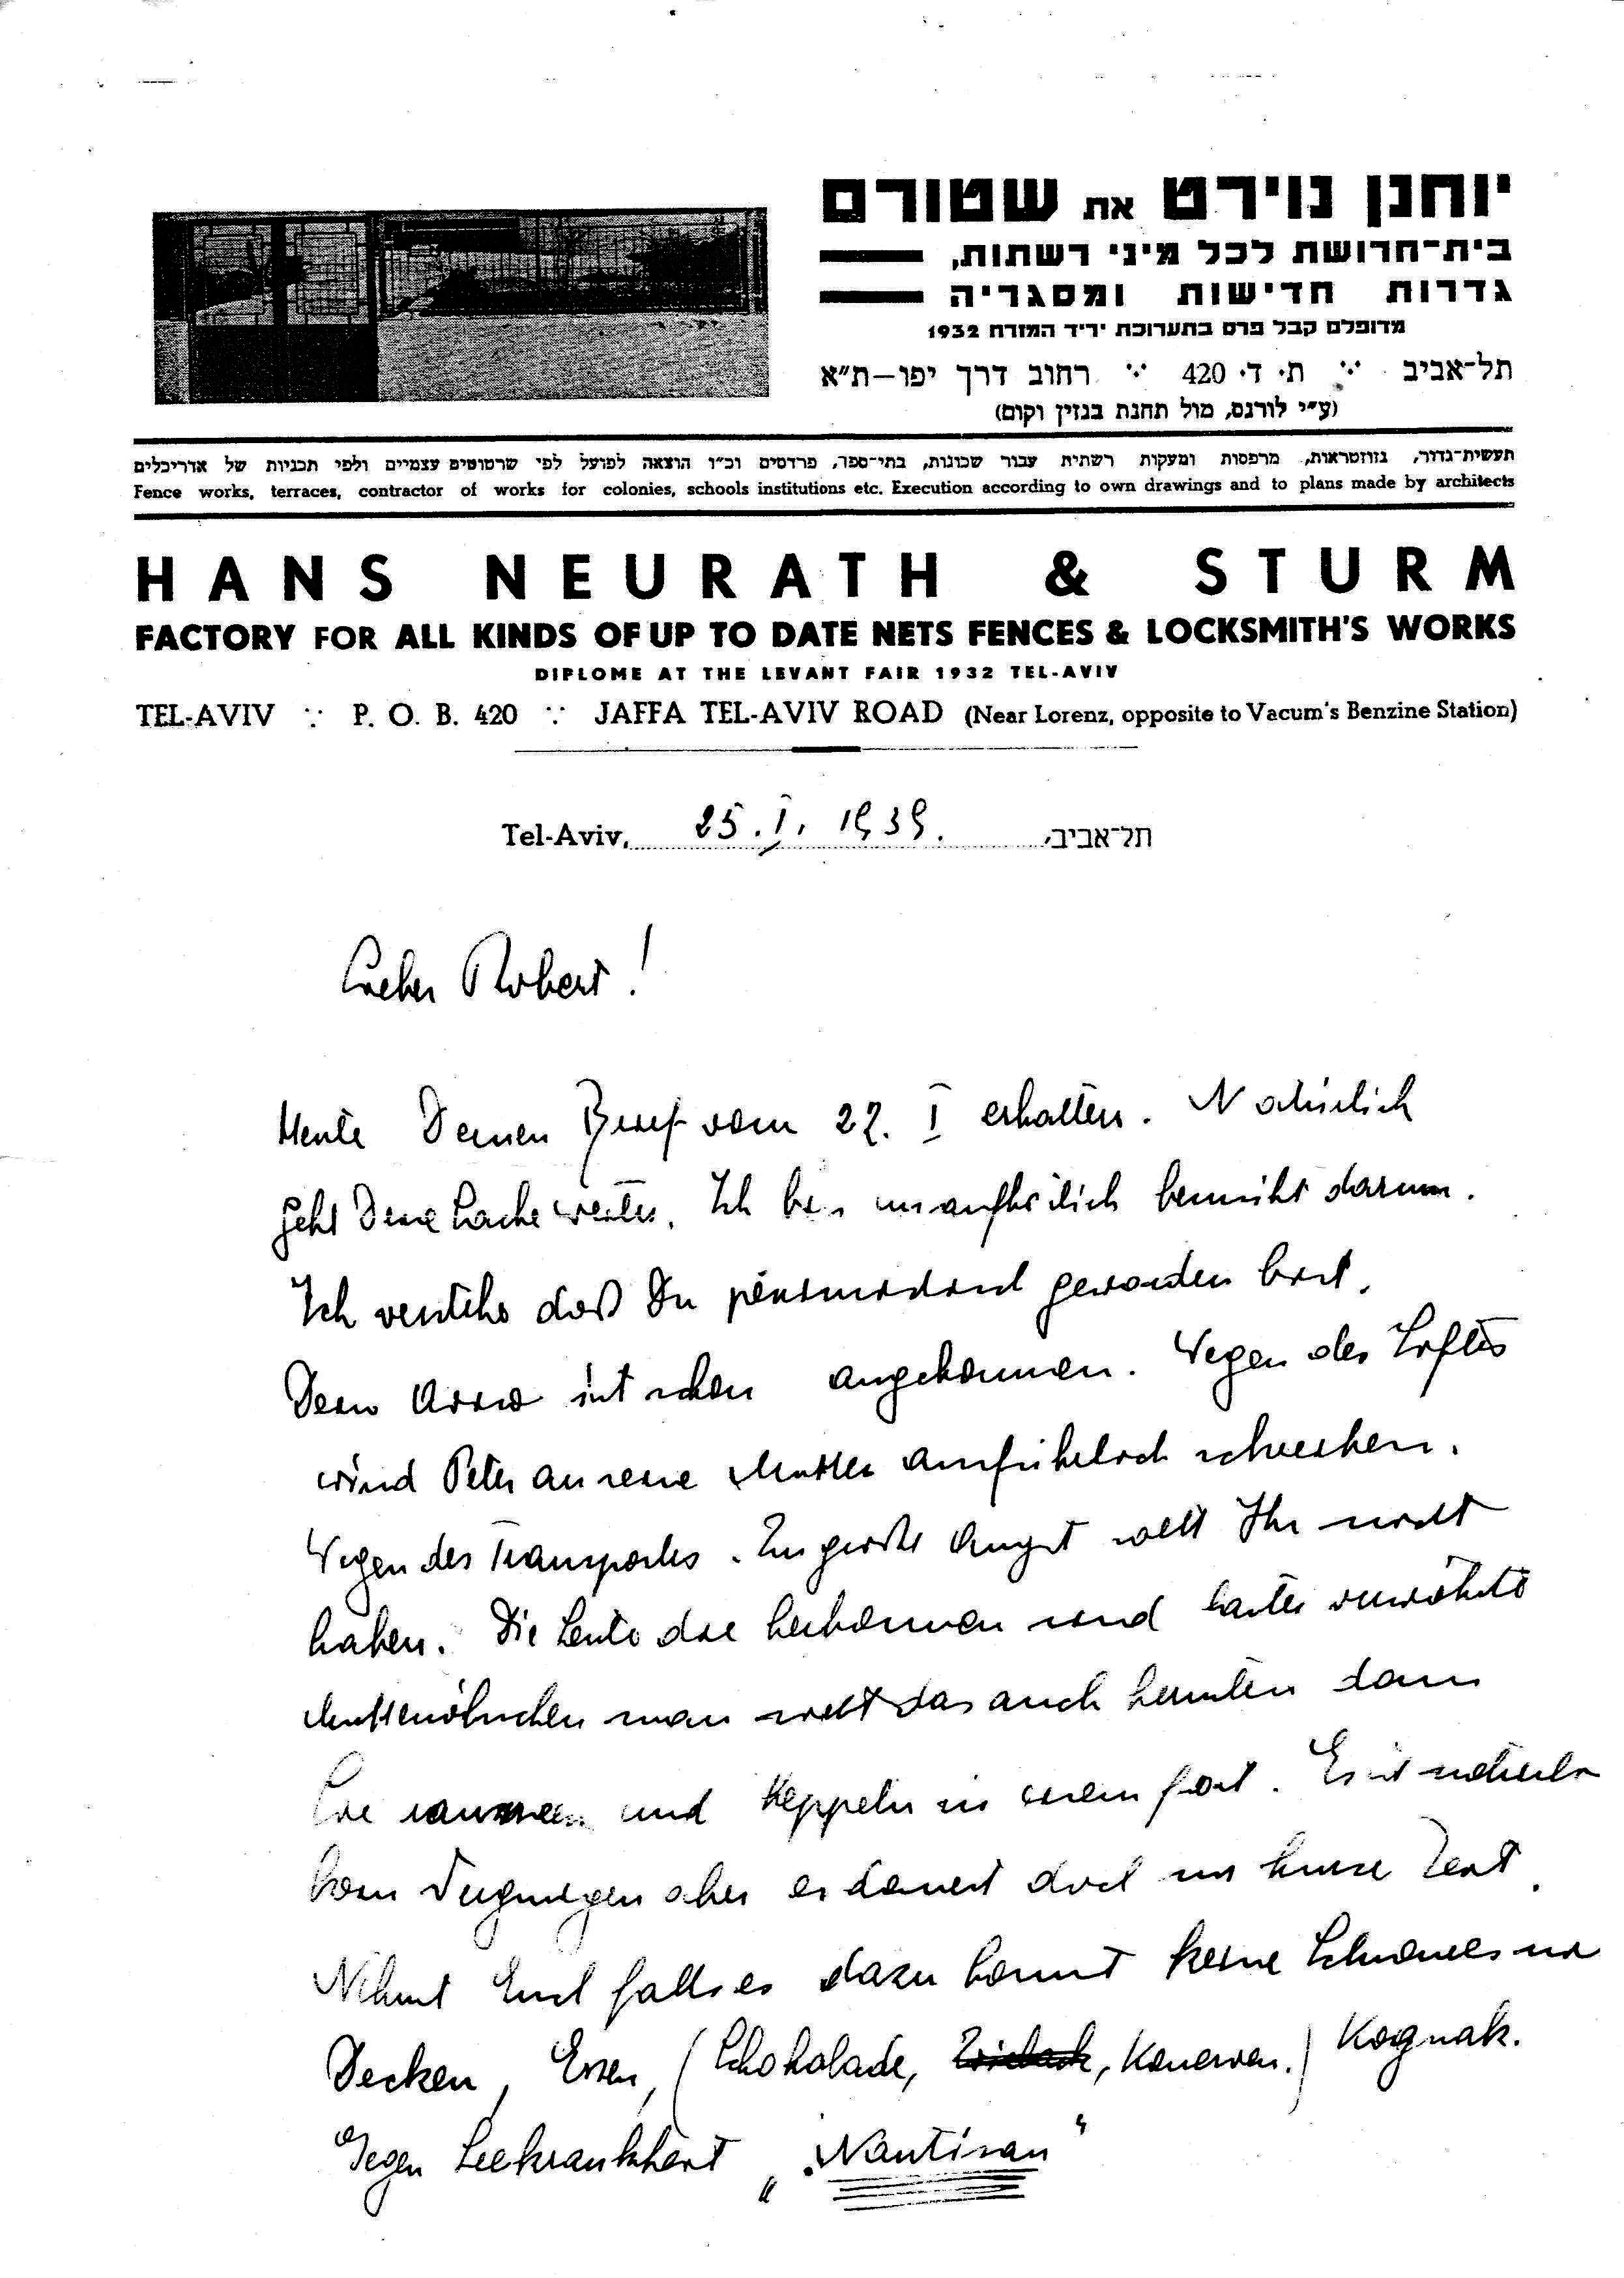 יוחנן נוירט את שטורם
בית־חרושת לכל מיני רשתות,
גדרות חדישות ומסגריה
מדופלם קבל פרס בתערוכת יריד המזרח 1932
תל־אביב ∵ ת. ד. 420 ∵ רחוב דרך יפו–ת״א
(ע״י לורנס, מול תחנת בנזין וקום)
תעשית־גדור, גזוזטראות, מרפסות ומעקות רשתית עבור שכונות, בתי־ספר, פרדסים וכ״ו הוצאה לפועל לפי שרטוטים עצמיים ולפי תכניות של אדריכלים
Fence works, terraces, contractor of works for colonies, schools institutions etc. Execution according to own drawings and to plans made by architects
HANS NEURATH & STURM
FACTORY FOR ALL KINDS OF UP TO DATE NETS FENCES & LOCKSMITH'S WORKS
DIPLOME AT THE LEVANT FAIR 1932 TEL-AVIV
TEL-AVIV ∵ P. O. B. 420 ∵ JAFFA TEL-AVIV ROAD (Near Lorenz, opposite to Vacum's Benzine Station)
Tel-Aviv, 25. I. 1939. תל־אביב,
Lieber Robert!
Heute Deinen Brief vom 22. I erhalten. Natürlich
geht Deine Sache weiter. Ich bin unaufhörlich bemüht darum.
Ich verstehe daß Du geworden bist.
Dein ist schon angekommen. Wegen des Liftes
wird Peter an seine Mutter ausführlich schreiben.
Wegen des Transportes. Zu große Angst sollt Ihr nicht
haben. Die Leute die herkommen sind lauter verwöhnte
Muttersöhnchen man sieht das auch herunten dann
Sie raunzen und keppeln in einem fort. Es ist natürlich
kein Vergnügen aber es dauert doch nur kurze Zeit.
Nehmt Euch falls es dazu kommt keine
Decken, Essen, (Schokolade, Zwieback, Konserven.) Kognak.
Gegen Seekrankheit „Nautisan“